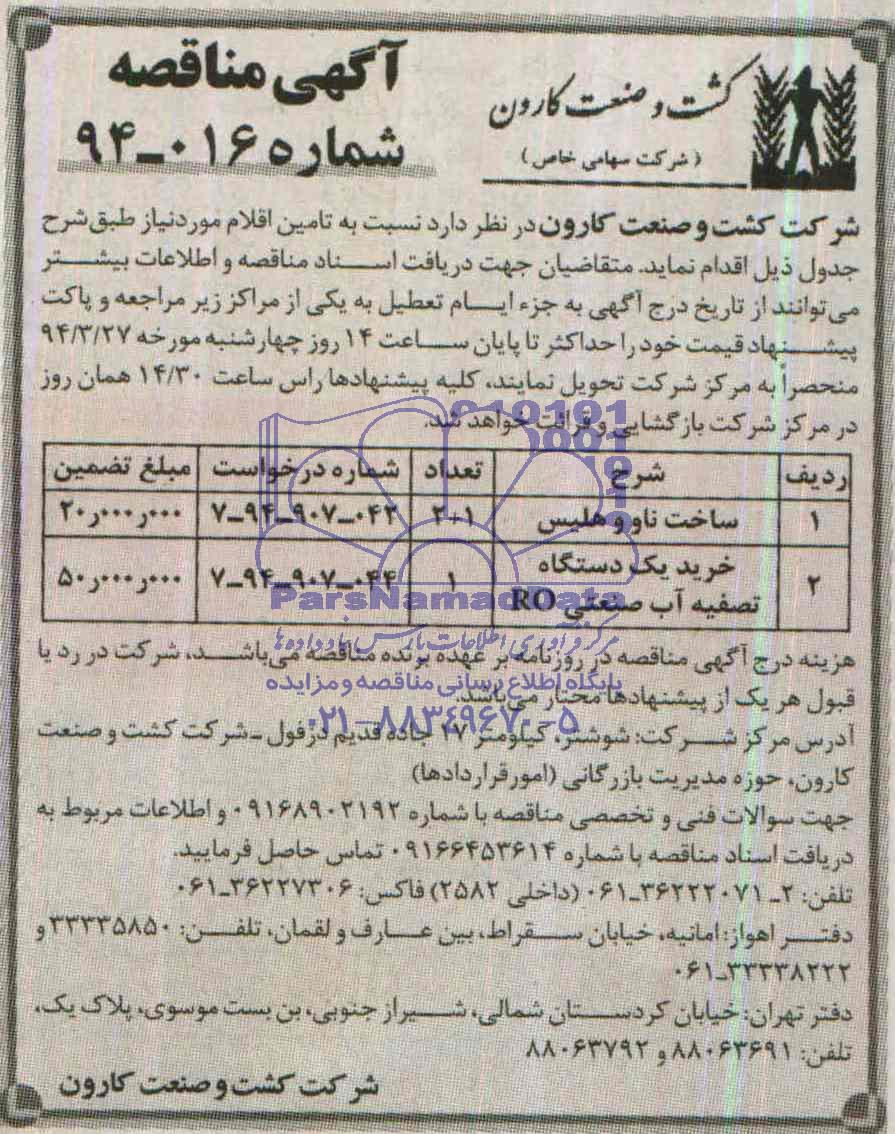 کشت و صنعت کارون
(شرکت سهامی خاص)
آگهی مناقصه
شماره ۰۱۶-۹۴
شرکت کشت و صنعت کارون در نظر دارد نسبت به تامین اقلام موردنیاز طبق شرح
جدول ذیل اقدام نماید. متقاضیان جهت دریافت اسناد مناقصه و اطلاعات بیشتر
می‌توانند از تاریخ درج آگهی به جزء ایام تعطیل به یکی از مراکز زیر مراجعه و پاکت
پیشنهاد قیمت خود را حداکثر تا پایان ساعت ۱۴ روز چهارشنبه مورخه ۹۴/۳/۲۷
منحصراً به مرکز شرکت تحویل نمایند، کلیه پیشنهادها راس ساعت ۱۴/۳۰ همان روز
در مرکز شرکت بازگشایی و قرائت خواهد شد.
ردیف شرح تعداد شماره درخواست مبلغ تضمین
۱ ساخت ناو و هلیس ۲+۱ ۷-۹۴-۹۰۷-۰۴۲ ۲۰٫۰۰۰٫۰۰۰
۲ خرید یک دستگاه
تصفیه آب صنعتی RO ۱ ۷-۹۴-۹۰۷-۰۴۴ ۵۰٫۰۰۰٫۰۰۰
ParsNamadData
مرکز فرآوری اطلاعات پارس نماد داده‌ها
هزینه درج آگهی مناقصه در روزنامه بر عهده برنده مناقصه می‌باشد، شرکت در رد یا
پایگاه اطلاع رسانی مناقصه و مزایده
قبول هر یک از پیشنهادها مختار می‌باشد.
۰۲۱-۸۸۳۴۹۶۷۰-۵
آدرس مرکز شرکت: شوشتر، کیلومتر ۱۷ جاده قدیم دزفول - شرکت کشت و صنعت
کارون، حوزه مدیریت بازرگانی (امور قراردادها)
جهت سوالات فنی و تخصصی مناقصه با شماره ۰۹۱۶۸۹۰۲۱۹۲ و اطلاعات مربوط به
دریافت اسناد مناقصه با شماره ۰۹۱۶۶۴۵۳۶۱۴ تماس حاصل فرمایید.
تلفن: ۲- ۰۶۱-۳۶۲۲۲۰۷۱ (داخلی ۲۵۸۲) فاکس: ۰۶۱-۳۶۲۲۷۳۰۶
دفتر اهواز: امانیه، خیابان سقراط، بین عارف و لقمان، تلفن: ۳۳۳۳۵۸۵۰ و
۰۶۱-۳۳۳۳۸۲۲۲
دفتر تهران: خیابان کردستان شمالی، شیراز جنوبی، بن بست موسوی، پلاک یک،
تلفن: ۸۸۰۶۳۶۹۱ و ۸۸۰۶۳۷۹۲
شرکت کشت و صنعت کارون